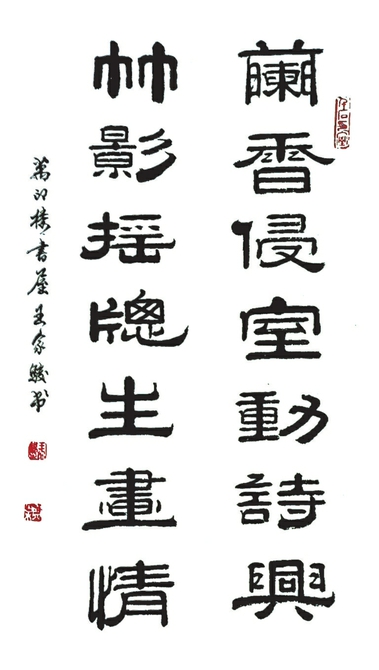 蘭香侵室動詩興
竹影摇牕生畫情
萬印樓書屋王家駿書